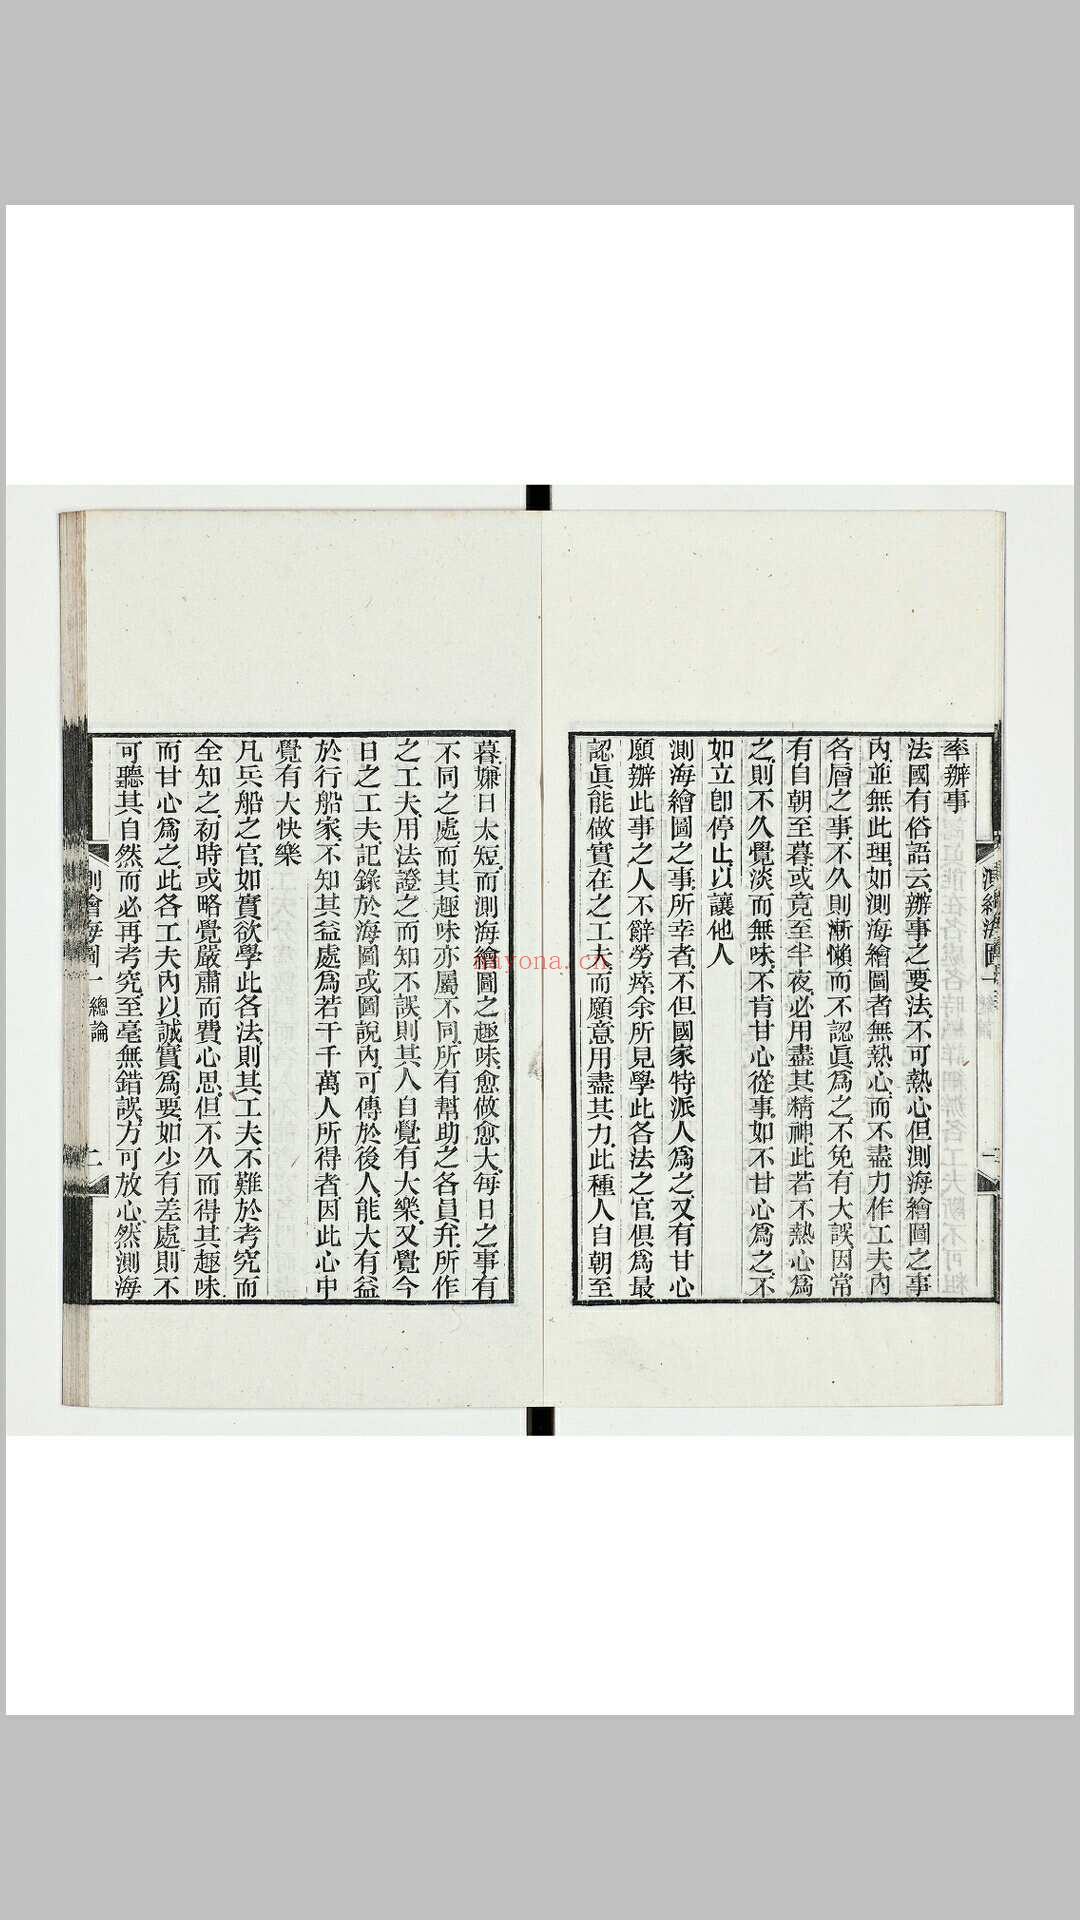 率辦事
法國有俗語云、辦事之要法、不可熱心、但測海繪圖之事
內、並無此理、如測海繪圖者無熱心、而不盡力作工夫內
各層之事、不久則漸懶而不認眞爲之、不免有大誤、因常
有自朝至暮或竟至半夜、必用盡其精神、此若不熱心爲
之、則不久覺淡而無味、不肯甘心從事、如不甘心爲之、不
如立卽停止、以讓他人
測海繪圖之事、所幸者、不但國家特派人爲之、又有甘心
願辦此事之人不辭勞瘁、余所見學此各法之官、俱爲最
認眞能做實在之工夫、而願意用盡其力、此種人自朝至
暮嫌日太短、而測海繪圖之趣味、愈做愈大、每日之事有
不同之處、而其趣味亦屬不同、所有幫助之各員弁、所作
之工夫、用法證之而知不誤、則其人自覺有大樂、又覺今
日之工夫、記錄於海圖或圖說內、可傳於後人、能大有益
於行船家、不知其益處爲若干千萬人所得者、因此心中
覺有大快樂
凡兵船之官、如實欲學此各法、則其工夫不難於考究而
全知之、初時或略覺嚴肅而費心思、但不久而得其趣味
而甘心爲之、此各工夫內以誠實爲要、如少有差處則不
可聽其自然、而必再考究、至毫無錯誤、方可放心、然測海
測繪海圖一 總論 二
mayona.cn